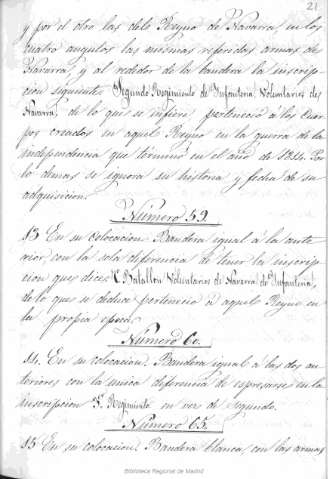 21
y por el otro las del Reyno de Navarra, en los
cuatro angulos las mismas referidas armas de
Navarra, y al rededor de la bandera la inscrip-
cion siguiente Segundo Regimiento de Infanteria, Voluntarios de
Navarra, de lo que se infiere perteneció á los Cuer-
pos creados en aquel Reyno en la guerra de la
independencia que terminó en el año de 1814. Por
lo demas se ignora su historia y fecha de su
adquisicion.
Número 59.
13 En su colocacion. Bandera igual á la ante-
rior con la sola diferencia de tener la inscrip-
cion que dice Batallon Voluntarios de Navarra de Infanteria,
de lo que se deduce perteneció á aquel Reyno en
la propia epoca.
Número 60.
14. En su colocacion. Bandera igual á las dos an-
teriores con la unica diferencia de espresarse en la
inscripcion Regimiento en vez de Segundo.
Número 65.
15 En su colocacion. Bandera blanca, con las armas
Biblioteca Regional de Madrid